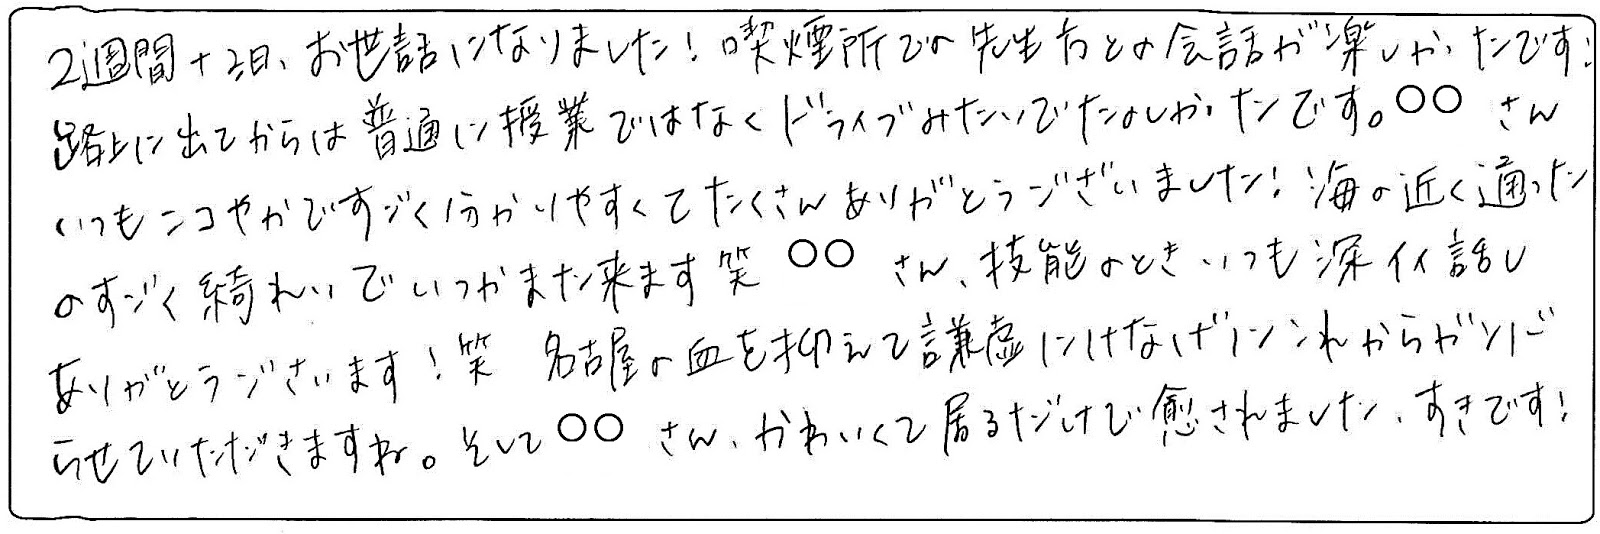 2週間+2日、お世話になりました!喫煙所での先生方との会話が楽しかったです!
路上に出てからは普通に授業ではなくドライブみたいでたのしかったです。○○ さん
いつもニコやかですごく分かりやすくてたくさんありがとうございました!海の近く通った
のすごく綺れいでいつかまた来ます笑 ○○ さん、技能のときいつも深イイ話し
ありがとうございます!笑 名古屋の血を抑えて謙虚にけなげにこれからがんば
らせていただきますね。そして○○ さん、かわいくて居るだけで癒されました、すきです!